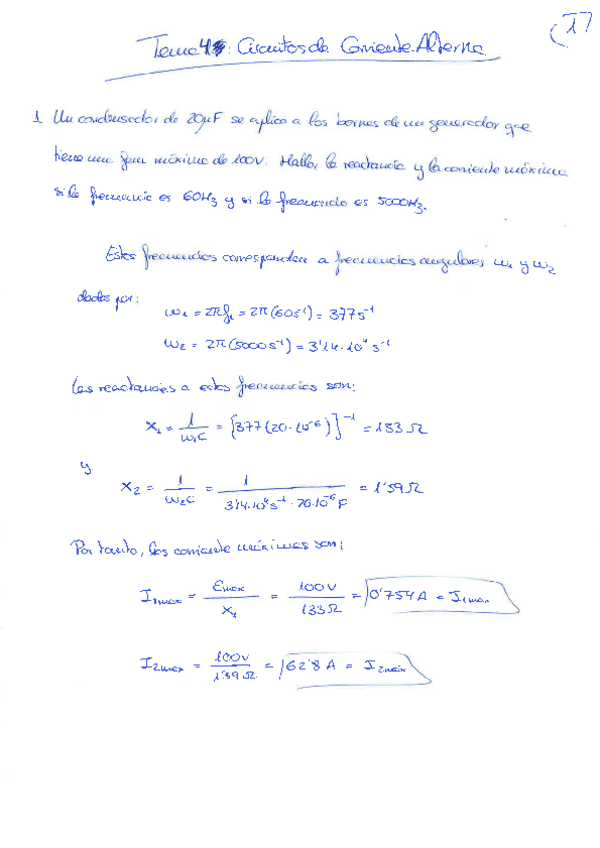 17
Tema 4: Circuitos de Corriente Alterna
1. Un condensador de 20μF se aplica a los bornes de un generador que
tiene una fem máxima de 100V. Hallar la reactancia y la corriente máxima
si la frecuencia es 60Hz y si la frecuencia es 5000Hz.
Estas frecuencias corresponden a frecuencias angulares ω₁ y ω₂
dadas por:
ω₁ = 2πf₁ = 2π(60s⁻¹) = 377s⁻¹
ω₂ = 2π(5000s⁻¹) = 3'14·10⁴ s⁻¹
Las reactancias a estas frecuencias son:
X₁ = 1/ω₁C = [377(20·10⁻⁶)]⁻¹ = 133 Ω
y
X₂ = 1/ω₂C = 1/(3'14·10⁴s⁻¹ · 20·10⁻⁶F) = 1'59 Ω
Por tanto, las corriente máximas son:
I₁max = Emax/X₁ = 100V/133Ω = 0'754A = I₁max
I₂max = 100V/1'59Ω = 62'8 A = I₂max